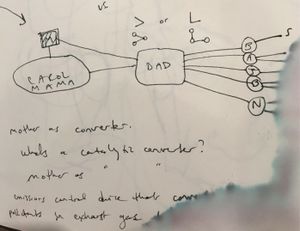 vs
> or L
S
CAROL
MAMA
DAD
5
A
I
B
N
mother as converter.
whats a catalytic converter?
mother as " "
emissions control device that
pollutants in exhaust gas